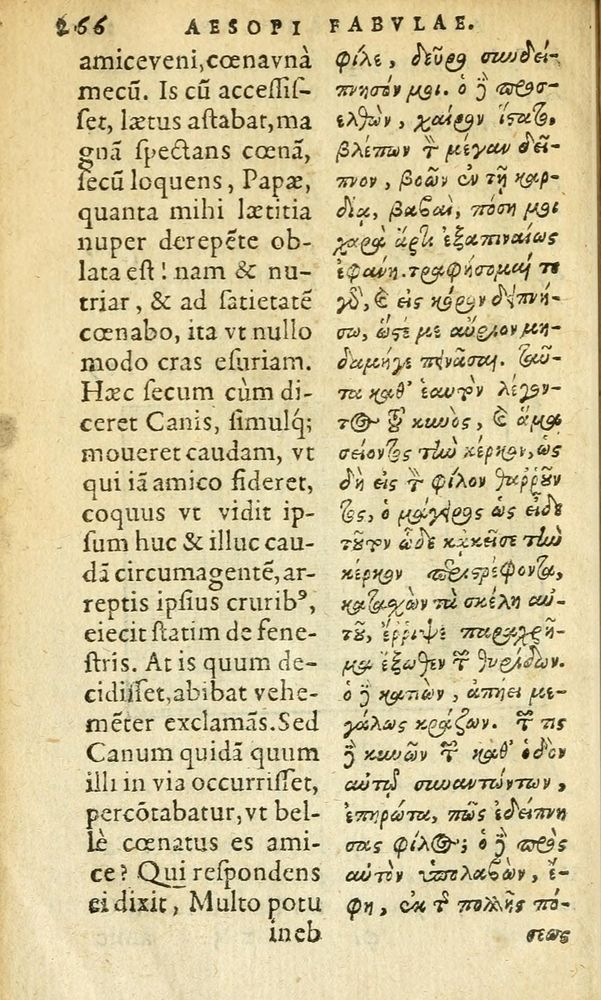 266 AESOPI FABVLAE.
amiceveni, cœnaunà
mecũ. Is cũ accessis-
set, lætus astabat, ma
gnã spectans cœnã,
secũ loquens, Papæ,
quanta mihi lætitia
nuper derepẽte ob-
lata est! nam & nu-
triar, & ad satietatẽ
cœnabo, ita vt nullo
modo cras esuriam.
Hæc secum cùm di-
ceret Canis, simulq́;
moueret caudam, vt
qui iã amico fideret,
coquus vt vidit ip-
sum huc & illuc cau-
dã circumagentẽ, ar-
reptis ipsius crurib⁹,
eiecit statim de fene-
stris. At is quum de-
cidisset, abibat vehe-
mẽter exclamãs. Sed
Canum quidã quum
illi in via occurrisset,
percõtabatur, vt bel-
lè cœnatus es ami-
ce? Qui respondens
ei dixit, Multo potu
ineb
φίλε, δεῦρο συνδεί-
πνησόν μοι. ὁ δὲ προσ-
ελθὼν, χαίρων ἵστατο,
βλέπων τὸ μέγαν δεῖ-
πνον, βοῶν ἐν τῇ καρ-
δίᾳ, βαβαὶ, πόση μοι
χαρὰ ἄρτι ἐξαπιναίως
ἐφάνη. τραφήσομαί τε
γὸ, καὶ εἰς κόρον δειπνή-
σω, ὥστε με αὔριον μη-
δαμῆγε πεινᾶσαι. ταῦ-
τα καθ' ἑαυτὸν λέγον-
τος τοῦ κυνὸς, καὶ ἅμα
σείοντος τὴν κέρκον, ὡς
δὴ εἰς τὸ φίλον θαῤῥοῦν
τος, ὁ μάγειρος ὡς εἶδε
τοῦτον ὧδε κᾀκεῖσε τὴν
κέρκον περιστρέφοντα,
κατασχὼν τὰ σκέλη αὐ-
τοῦ, ἔῤῥιψε παραχρῆ-
μα ἔξωθεν τῶν θυρίδων.
ὁ δὲ καπὼν, ἀπῄει με-
γάλως κράζων. τῶν τις
δὲ κυνῶν τῶν καθ' ὁδὸν
αὐτῷ συναντώντων,
ἐπηρώτα, πῶς ἐδείπνη
σας φίλος; ὁ δὲ πρὸς
αὐτὸν ὑπολαβὼν, ἔ-
φη, ἐκ τῆς πολλῆς πό-
σεως